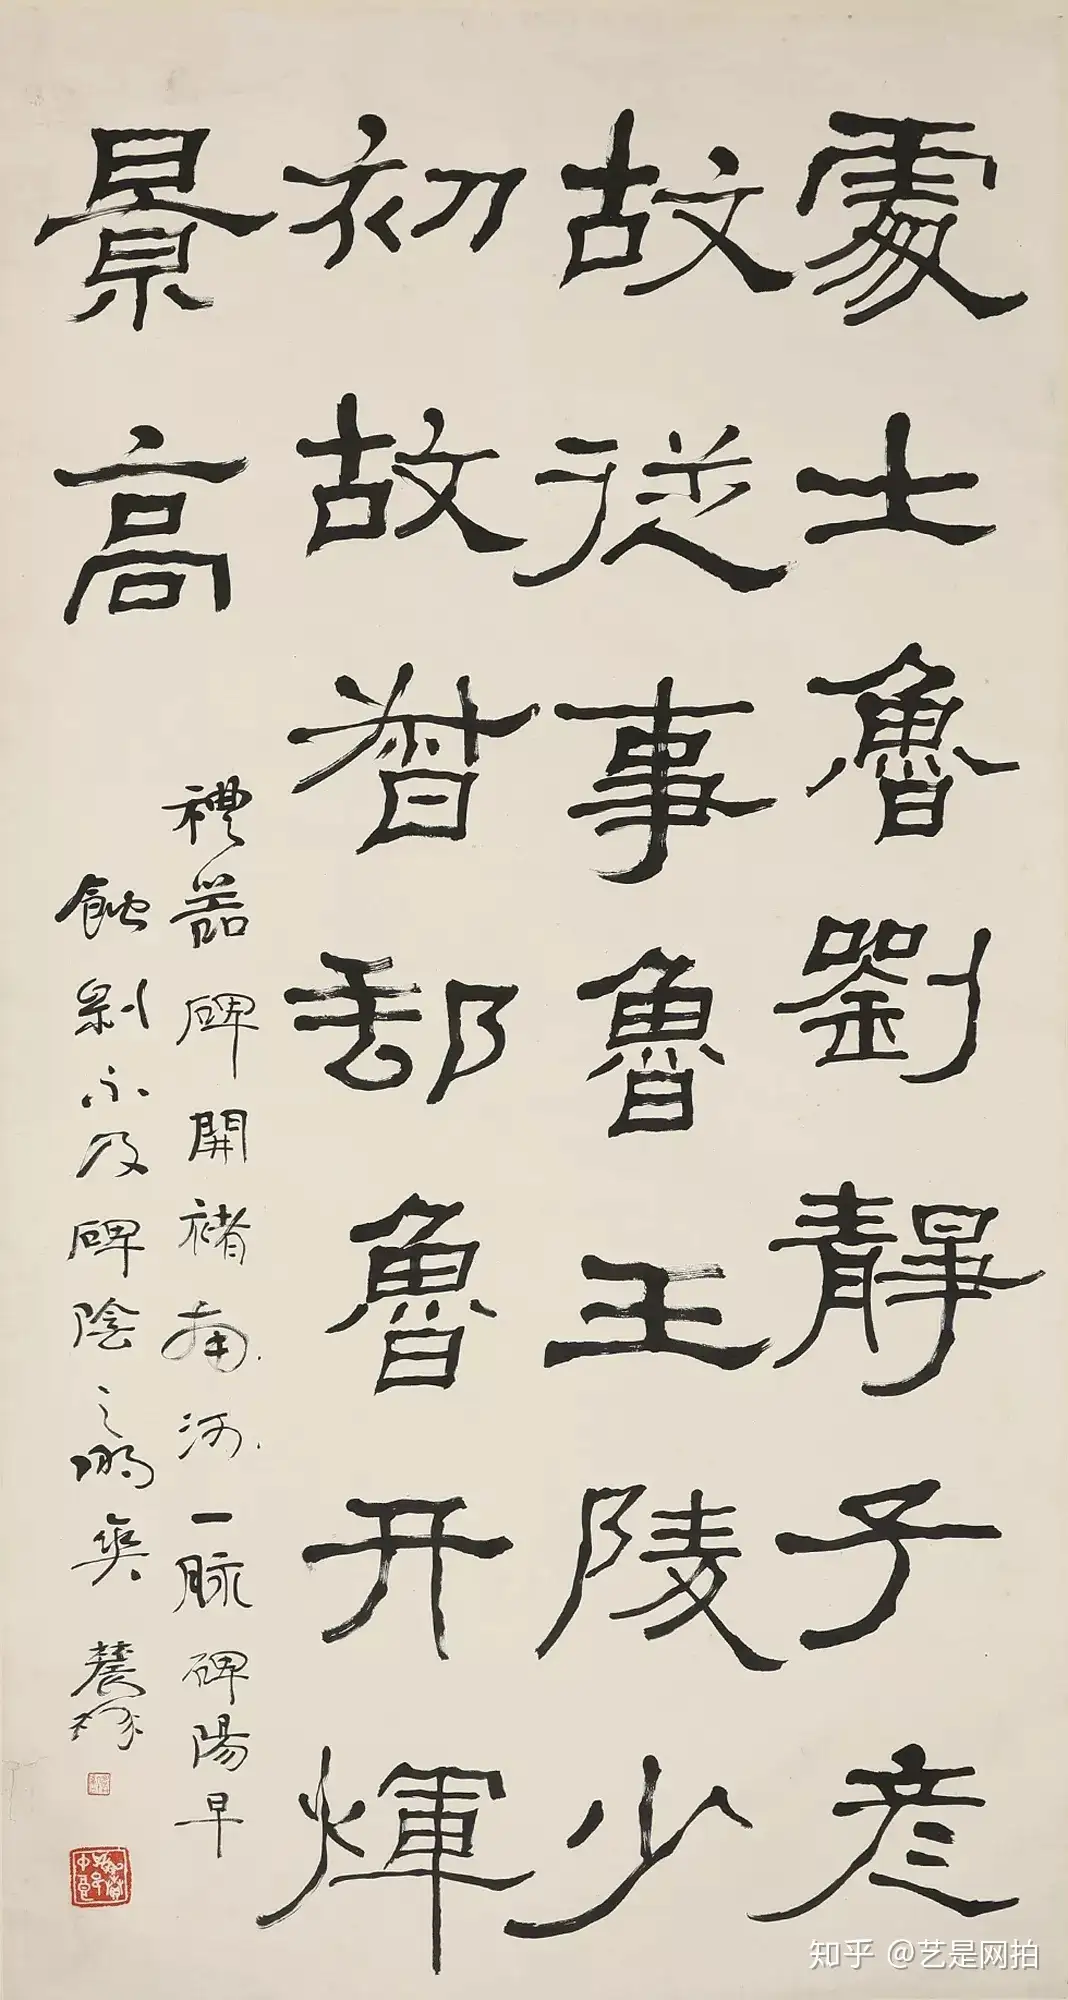 處士魯劉靜子彥
故從事魯王陵少
初故督郵魯开煇
景高
禮器碑開褚南河一脈碑陽早
蝕剝不及碑陰之爽
知乎 @艺是网拍